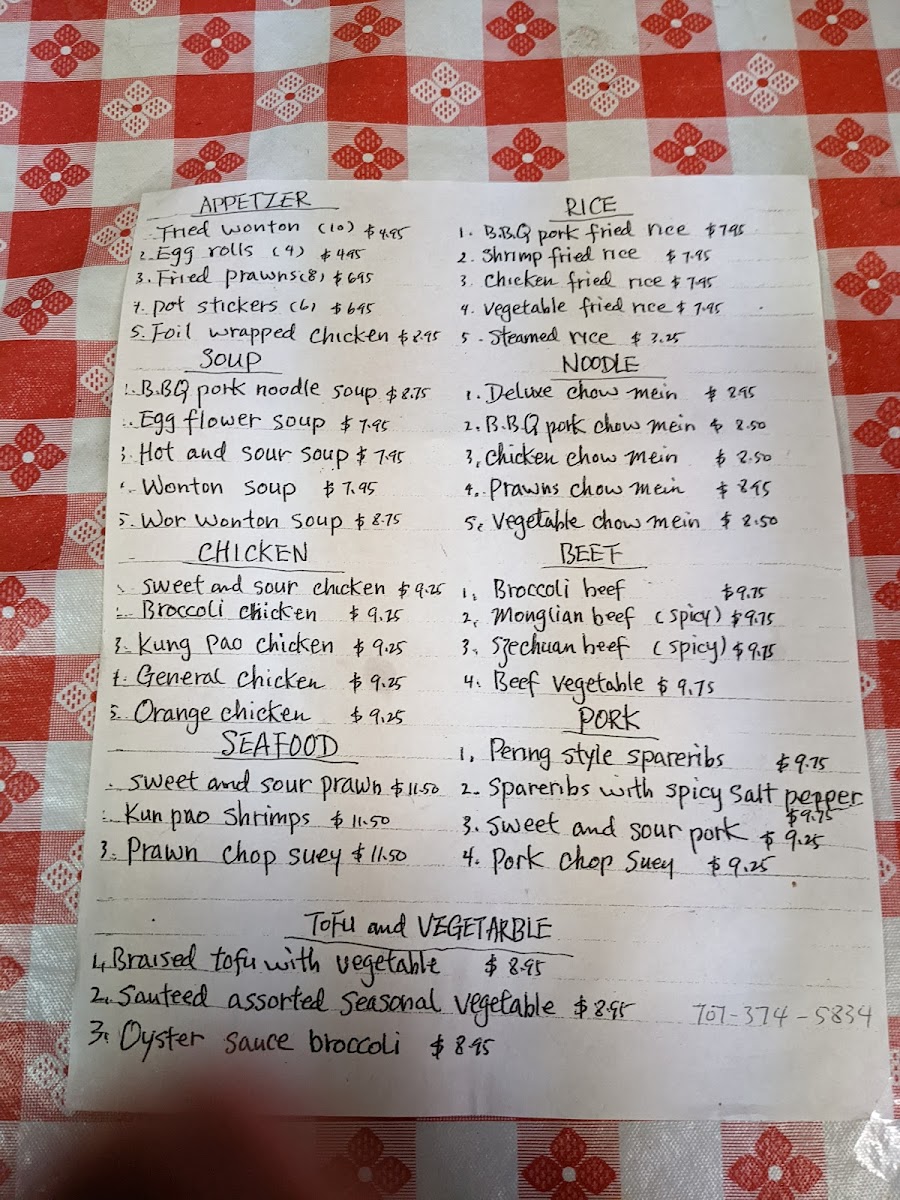 APPETZER
Fried wonton (10) $4.95
2. Egg rolls (4) $4.95
3. Fried prawns(8) $6.95
4. pot stickers (6) $6.95
5. Foil wrapped chicken $8.95
SOUP
1. B.B.Q pork noodle soup $8.75
Egg flower soup $7.95
3 Hot and sour soup $7.95
Wonton soup $7.95
5. Wor wonton soup $8.75
CHICKEN
sweet and sour chicken $9.25
Broccoli chicken $9.25
3. Kung pao chicken $9.25
4. General chicken $9.25
5. Orange chicken $9.25
SEAFOOD
sweet and sour prawn $11.50
Kun pao shrimps $11.50
3. Prawn chop suey $11.50
RICE
1. B.B.Q pork fried rice $7.95
2. Shrimp fried rice $7.95
3. chicken fried rice $7.95
4. vegetable fried rice $7.95
5. Steamed rice $3.25
NOODLE
1. Deluxe chow mein $8.95
2. B.B.Q pork chow mein $8.50
3. chicken chow mein $8.50
4. Prawns chow mein $8.95
5. vegetable chow mein $8.50
BEEF
1. Broccoli beef $9.75
2. Monglian beef (spicy) $9.75
3. Szechuan beef (spicy) $9.75
4. Beef vegetable $9.75
PORK
1. Pening style spareribs $9.75
2. Spareribs with spicy salt pepper
$9.75
3. sweet and sour pork $9.25
4. Pork chop suey $9.25
TOFU and VEGETARBLE
1. Braised tofu with vegetable $8.95
2. Sauteed assorted seasonal vegetable $8.95
3. Oyster sauce broccoli $8.95
707-374-5834